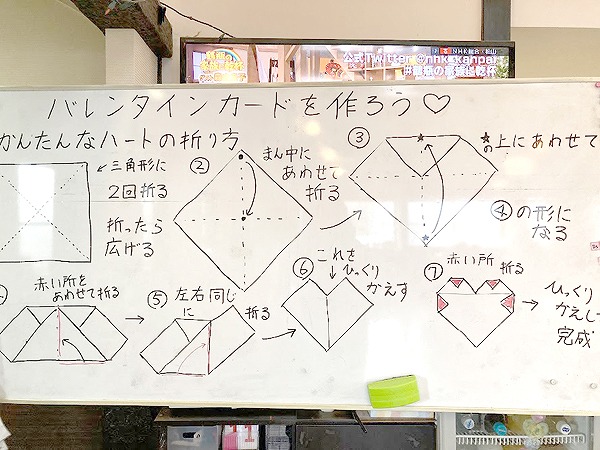 NHK総合・松山
公式Twitter@nhk_kanpai
バレンタインカードを作ろう♡
かんたんなハートの折り方
三角形に
2回折る
折ったら
広げる
②
まん中に
あわせて
折る
③
★の上にあわせて
④の形に
なる
赤い所を
あわせて折る
⑤
左右同じ
に
折る
⑥
これを
↓ひっくり
かえす
⑦
赤い所
折る
→
ひっくり
かえして
完成